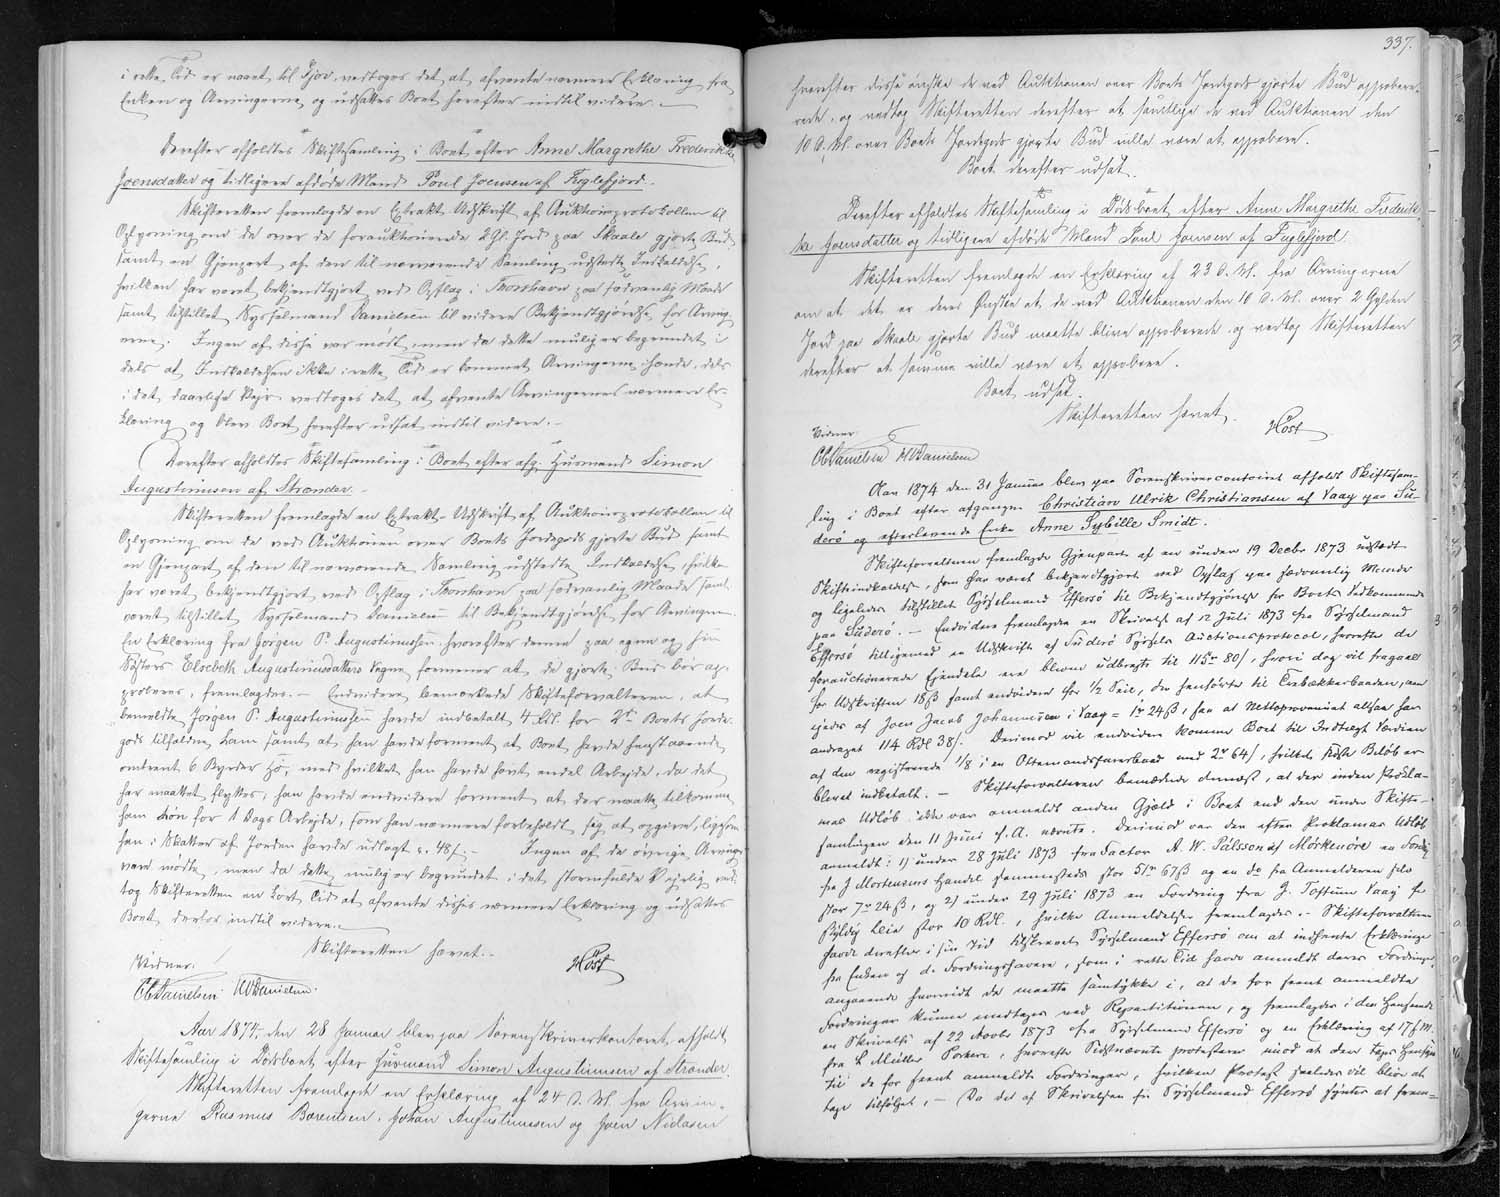 i rette Tid er naaet til Hjov, vedtoges det at afvente nærmere Erklæring fra
Enken og Arvingerne, og udsattes Boet herefter indtil videre. —
Derefter afholdtes Skiftesamling i Boet efter Anne Margrethe Frederikke
Joensdatter og tidligere afdøde Mand Poul Joensen af Fuglefjord. –
Skifteretten fremlagde en Extrakt-Udskrift af Auktionsprotokollen til
Oplysning om de over de forauktionerede 2 Gl. Jord paa Skaale gjorte Bud
samt en Gjenpart af den til nærværende Samling udstedte Indkaldelse,
hvilken har været bekjendtgjort ved Opslag i Thorshavn paa sædvanlig Maade
samt tilstillet Sysselmand Danielsen til videre Bekjendtgjørelse for Arvin-
gerne. Ingen af disse var mødt, men da dette muligen er begrundet i
dels at Indkaldelsen ikke i rette Tid er kommet Arvingerne ihænde, dels
i det daarlige Vejr vedtoges det at afvente Arvingernes nærmere Er-
klæring og blev Boet herefter udsat indtil videre. –
Derefter afholdtes Skiftesamling i Boet efter afg. Huusmand Simon
Augustinussen af Strænder. –
Skifteretten fremlagde en Extrakt-Udskrift af Auktionsprotokollen til
Oplysning om de ved Auktionen over Boets Jordegods gjorte Bud samt
en Gjenpart af den til nærværende Samling udstedte Indkaldelse, hvilken
har været bekjendtgjort ved Opslag i Thorshavn paa sædvanlig Maade samt
været tilstillet Sysselmand Danielsen til Bekjendtgjørelse for Arvingerne.
En Erklæring fra Jørgen P. Augustinussen, hvorefter denne paa egne og sin
Søsters Elsebeth Augustinusdatters Vegne formener at de gjorte Bud bør ap-
proberes, fremlagdes. – Endvidere bemærkede Skifteforvalteren, at
bemeldte Jørgen P. Augustinussen havde indbetalt 4 Rdl. for Boets Jorde-
gods tilfalden ham samt at han havde forment at Boet havde henstaaende
omtrent 6 Byrder Hø, med hvilket han havde havt endel Arbejde, da det
har maattet flyttes; han havde endvidere forment at der maatte tilkomme
ham Løn for 1 Dags Arbejde, som han nærmere forbeholdt sig at opgive, ligesom
han i Skatter af Jorden havde udlagt c. 48 /. – Ingen af de øvrige Arvinger
vare mødte, men da dette muligen er begrundet i det stormfulde Vejrlig ved-
tog Skifteretten en kort Tid at afvente disses nærmere Erklæring og udsattes
Boet derfor indtil videre. –
Skifteretten hævet. –
Vidner: Høst
Danielsen HDDanielsen.
Aar 1874, den 28 Januar blev paa Sorenskriverkontoret afholdt
Skiftesamling i Dødsboet efter Huusmand Simon Augustinussen af Strænder.
Skifteretten fremlagde en Erklæring af 24 d. M. fra Arvin-
gerne Rasmus Bærentsen, Johan Augustinussen og Joen Niclasen
337.
hvorefter disse ønske de ved Auktionen over Boets Jordegods gjorte Bud approbere-
rede, og vedtog Skifteretten derefter at samtlige de ved Auktionen den
10 d. M. over Boets Jordegods gjorte Bud ville være at approbere.
Boet derefter udsat.
Derefter afholdtes Skiftesamling i Dødsboet efter Anne Margrethe Frederik-
ke Joensdatter og tidligere afdøde Mand Poul Joensen af Fuglefjord.
Skifteretten fremlagde en Erklæring af 23 d. M. fra Arvingerne
om at det er deres Ønske at de ved Auktionen den 10 d. M. over 2 Gylden
Jord paa Skaale gjorte Bud maatte blive approberede og vedtog Skifteretten
derefter at samme ville være at approbere.
Boet udsat.
Skifteretten hævet.
Høst
Vidner:
Danielsen HDDanielsen
Aar 1874 den 31 Januar blev paa Sorenskrivercontoiret afholdt Skiftesam-
ling i Boet efter afgangne Christian Ulrik Christiansen af Vaag paa Su-
derø og efterlevende Enke Anne Sybille Smidt.
Skifteforvalteren fremlagde Gjenpart af en under 19 Decbr 1873 udstædt
Skifteindkaldelse, som har været bekjendtgjort ved Opslag paa sædvanlig Maade
og ligeledes tilstillet Sysselmand Effersø til Bekjendtgjørelse for Boets Vedkommende
paa Suderø. – Endvidere fremlagdes en Skrivelse af 12 Juli 1873 fra Sysselmand
Effersø tilligemed en Udskrift af Suderø Syssels Auctionsprotocol, hvorefter de
forauctionerede Ejendele ere blevne udbragte til 115 r 80 /, hvori dog vil fragaae
for Udskriften 18 ß samt endvidere for 1/2 Seil, der henførte til Trebækkerbaaden, som
ejedes af Joen Jacob Johannesen i Vaag = 1 r 24 ß, saa at Nettoprovenuet altsaa har
andraget 114 Rdl 38 /. Derimod vil endvidere komme Boet til Indtægt Værdien
af den registrerede 1/8 i en Ottemandsfarerbaad med 2 r 64 /, hvilket sidste Beløb er
blevet indbetalt. – Skifteforvalteren bemærkede dernæst, at der inden Prokla-
mas Udløb ikke var anmeldt anden Gjæld i Boet end den under Skifte-
samlingen den 11 Juni f. A. nævnte. Derimod var den efter Proklamas Udløb
anmeldt: 1) under 28 Juli 1873 fra Factor A. W. Pálsson af Møskenøre en Fordring
fra J. Mortensens Handel sammesteds stor 51 r 67 ß og en do fra Anmelderen selv
stor 7 r 24 ß, og 2) under 29 Juli 1873 en Fordring fra J. Toftum Vaag for
skyldig Leie stor 10 Rdl., hvilke Anmeldelser fremlagdes. – Skifteforvalteren
havde derefter i sin Tid tilskrevet Sysselmand Effersø om at indhente Erklæringer
fra Enken og de Fordringshavere, som i rette Tid havde anmeldt deres Fordringer,
angaaende hvorvidt de maatte samtykke i, at de for seent anmeldte
Fordringer kunne medtages ved Repartitionen, og fremlagdes i den Henseende
en Skrivelse af 22 Novbr 1873 fra Sysselmand Effersø og en Erklæring af 17 f. M.
fra L Müller Porkere, hvorefter Sidstnævnte protesterer imod at der tages Hensyn
til de for seent anmeldte Fordringer, hvilken Protest saaledes vil blive at
tage tilfølge. – Da det af Skrivelsen fra Sysselmand Effersø synes at frem-